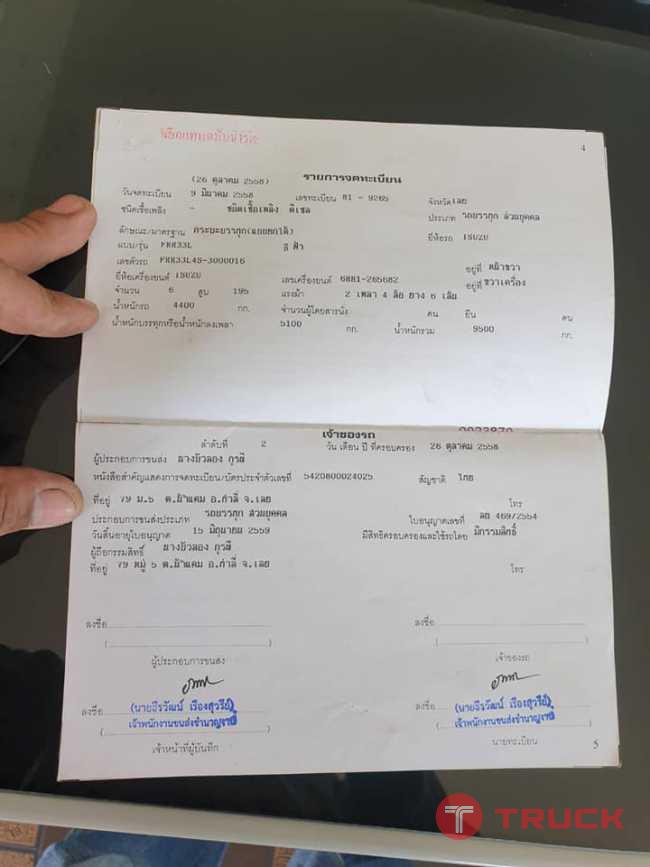 4
รายการจดทะเบียน
(26 ตุลาคม 2558)
วันจดทะเบียน 9 มีนาคม 2558 เลขทะเบียน 81 - 9265 จังหวัด เลย
ชนิดเชื้อเพลิง - ชนิดเชื้อเพลิง ดีเซล ประเภท รถบรรทุก ส่วนบุคคล
ลักษณะ/มาตรฐาน กระบะบรรทุก ยี่ห้อรถ ISUZU
แบบ/รุ่น FRR33L สี ฟ้า
เลขตัวรถ FRR33L4S-3000016 อยู่ที่
ยี่ห้อเครื่องยนต์ ISUZU เลขเครื่องยนต์ 6HH1-265682 อยู่ที่ ขวาเครื่อง
จำนวน 6 สูบ 195 แรงม้า 2 เพลา 4 ล้อ ยาง 6 เส้น
น้ำหนักรถ 4400 กก. จำนวนผู้โดยสารนั่ง คน ยืน คน
น้ำหนักบรรทุกหรือน้ำหนักลงเพลา 5100 กก. น้ำหนักรวม 9500 กก.
เจ้าของรถ
ลำดับที่ 2 วัน เดือน ปี ที่ครอบครอง 26 ตุลาคม 2558
ผู้ประกอบการขนส่ง
หนังสือสำคัญแสดงการจดทะเบียน/บัตรประจำตัวเลขที่ 5420800024025 สัญชาติ ไทย
ที่อยู่ 79 ม.5 จ.เลย โทร
ประกอบการขนส่งประเภท รถบรรทุก ส่วนบุคคล ใบอนุญาตเลขที่ ลย 469/2554
วันสิ้นอายุใบอนุญาต 15 มิถุนายน 2559 มีสิทธิครอบครองและใช้รถโดย มีกรรมสิทธิ์
ผู้ถือกรรมสิทธิ์
ที่อยู่ 79 หมู่ 5 จ.เลย โทร
ลงชื่อ ลงชื่อ
( ) ( )
ผู้ประกอบการขนส่ง เจ้าของรถ
ลงชื่อ (นายธีรวัฒน์ เรืองสุวรีย์) (นายธีรวัฒน์ เรืองสุวรีย์)
เจ้าพนักงานขนส่งชำนาญงาน เจ้าพนักงานขนส่งชำนาญงาน
เจ้าหน้าที่ผู้บันทึก นายทะเบียน
5
TRUCK